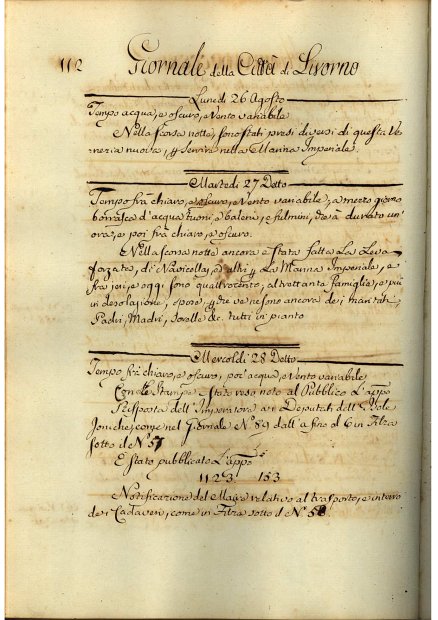 112 Giornale della Città di Livorno
Lunedì 26 Agosto
Tempo acqua, e oscuro, e Vento variabile
Nella scorsa notte, sono stati presi diversi di questa Ve-
neria nuova, p servire nella Marina Imperiale.
Martedì 27 Detto
Tempo frà chiaro, e oscuro, e Vento variabile, a mezzo giorno
borrasca d'acqua tuoni e baleni, e fulmini, che à durato un'
ora, e poi frà chiaro, e oscuro.
Nella scorsa notte ancora è stata fatta La Leva
forzata, di Navicellaj, e altri p La Marina Imperiale, e
frà jeri, e oggi sono quattrocento, altrettante famiglie, e più
in desolazione, che ve ne sono ancora dei
Padri, Madri, Sorelle &c. tutti in pianto
Mercoledì 28 Detto
Tempo frà chiaro, e oscuro, poi acqua, e Vento variabile
Stampe è stato reso noto al Pubblico L'appo
Risposta dell'Imperatore ai Deputati dell'Isole
Joniche, come nel Giornale N° 59 dall a fine al 6 in Filza
sotto il N° 57
È stato pubblicato L'appo
1123. 153
Notificazione del Maire relativo al trasporto, e interro
dei Cadaveri, come in Filza sotto il N° 58.